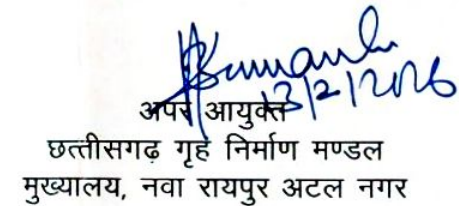 13/2/2026
अपर आयुक्त
छत्तीसगढ़ गृह निर्माण मण्डल
मुख्यालय, नवा रायपुर अटल नगर